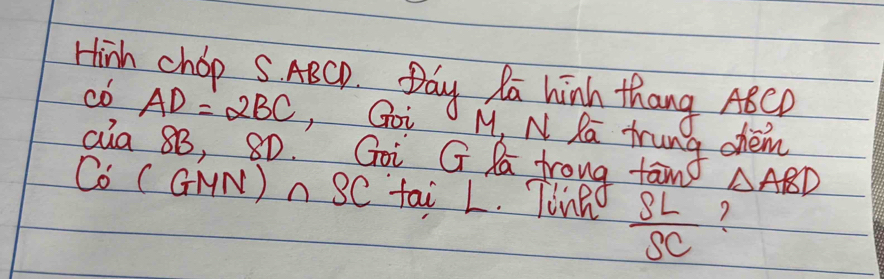 Hình chóp S.ABCD. Đáy là hình thang ABCD
có AD = 2BC, Gọi M, N là trung điểm
của SB, SD. Gọi G là trọng tâm △ABD
Có (GMN) ∩ SC tại L. Tính SL/SC ?